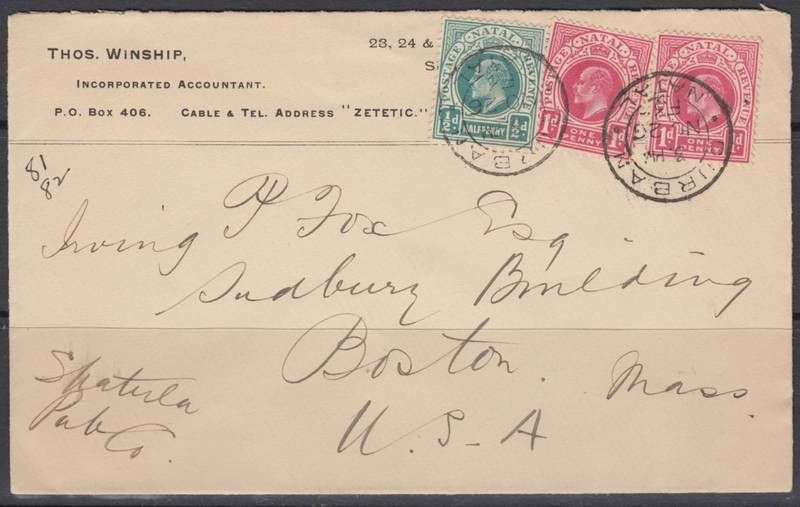 THOS. WINSHIP,
INCORPORATED ACCOUNTANT.
P.O. BOX 406. CABLE & TEL. ADDRESS "ZETETIC."
23, 24 &
S
POSTAGE NATAL REVENUE
½d HALFPENNY ½d
POSTAGE NATAL
1d ONE PENNY
NATAL REVENUE
1d ONE PENNY 1d
DURBAN
NATAL
81
82
Irving P Fox Esq
Sudbury Building
Boston. Mass.
U. S. A
Spatula
Pub Co.